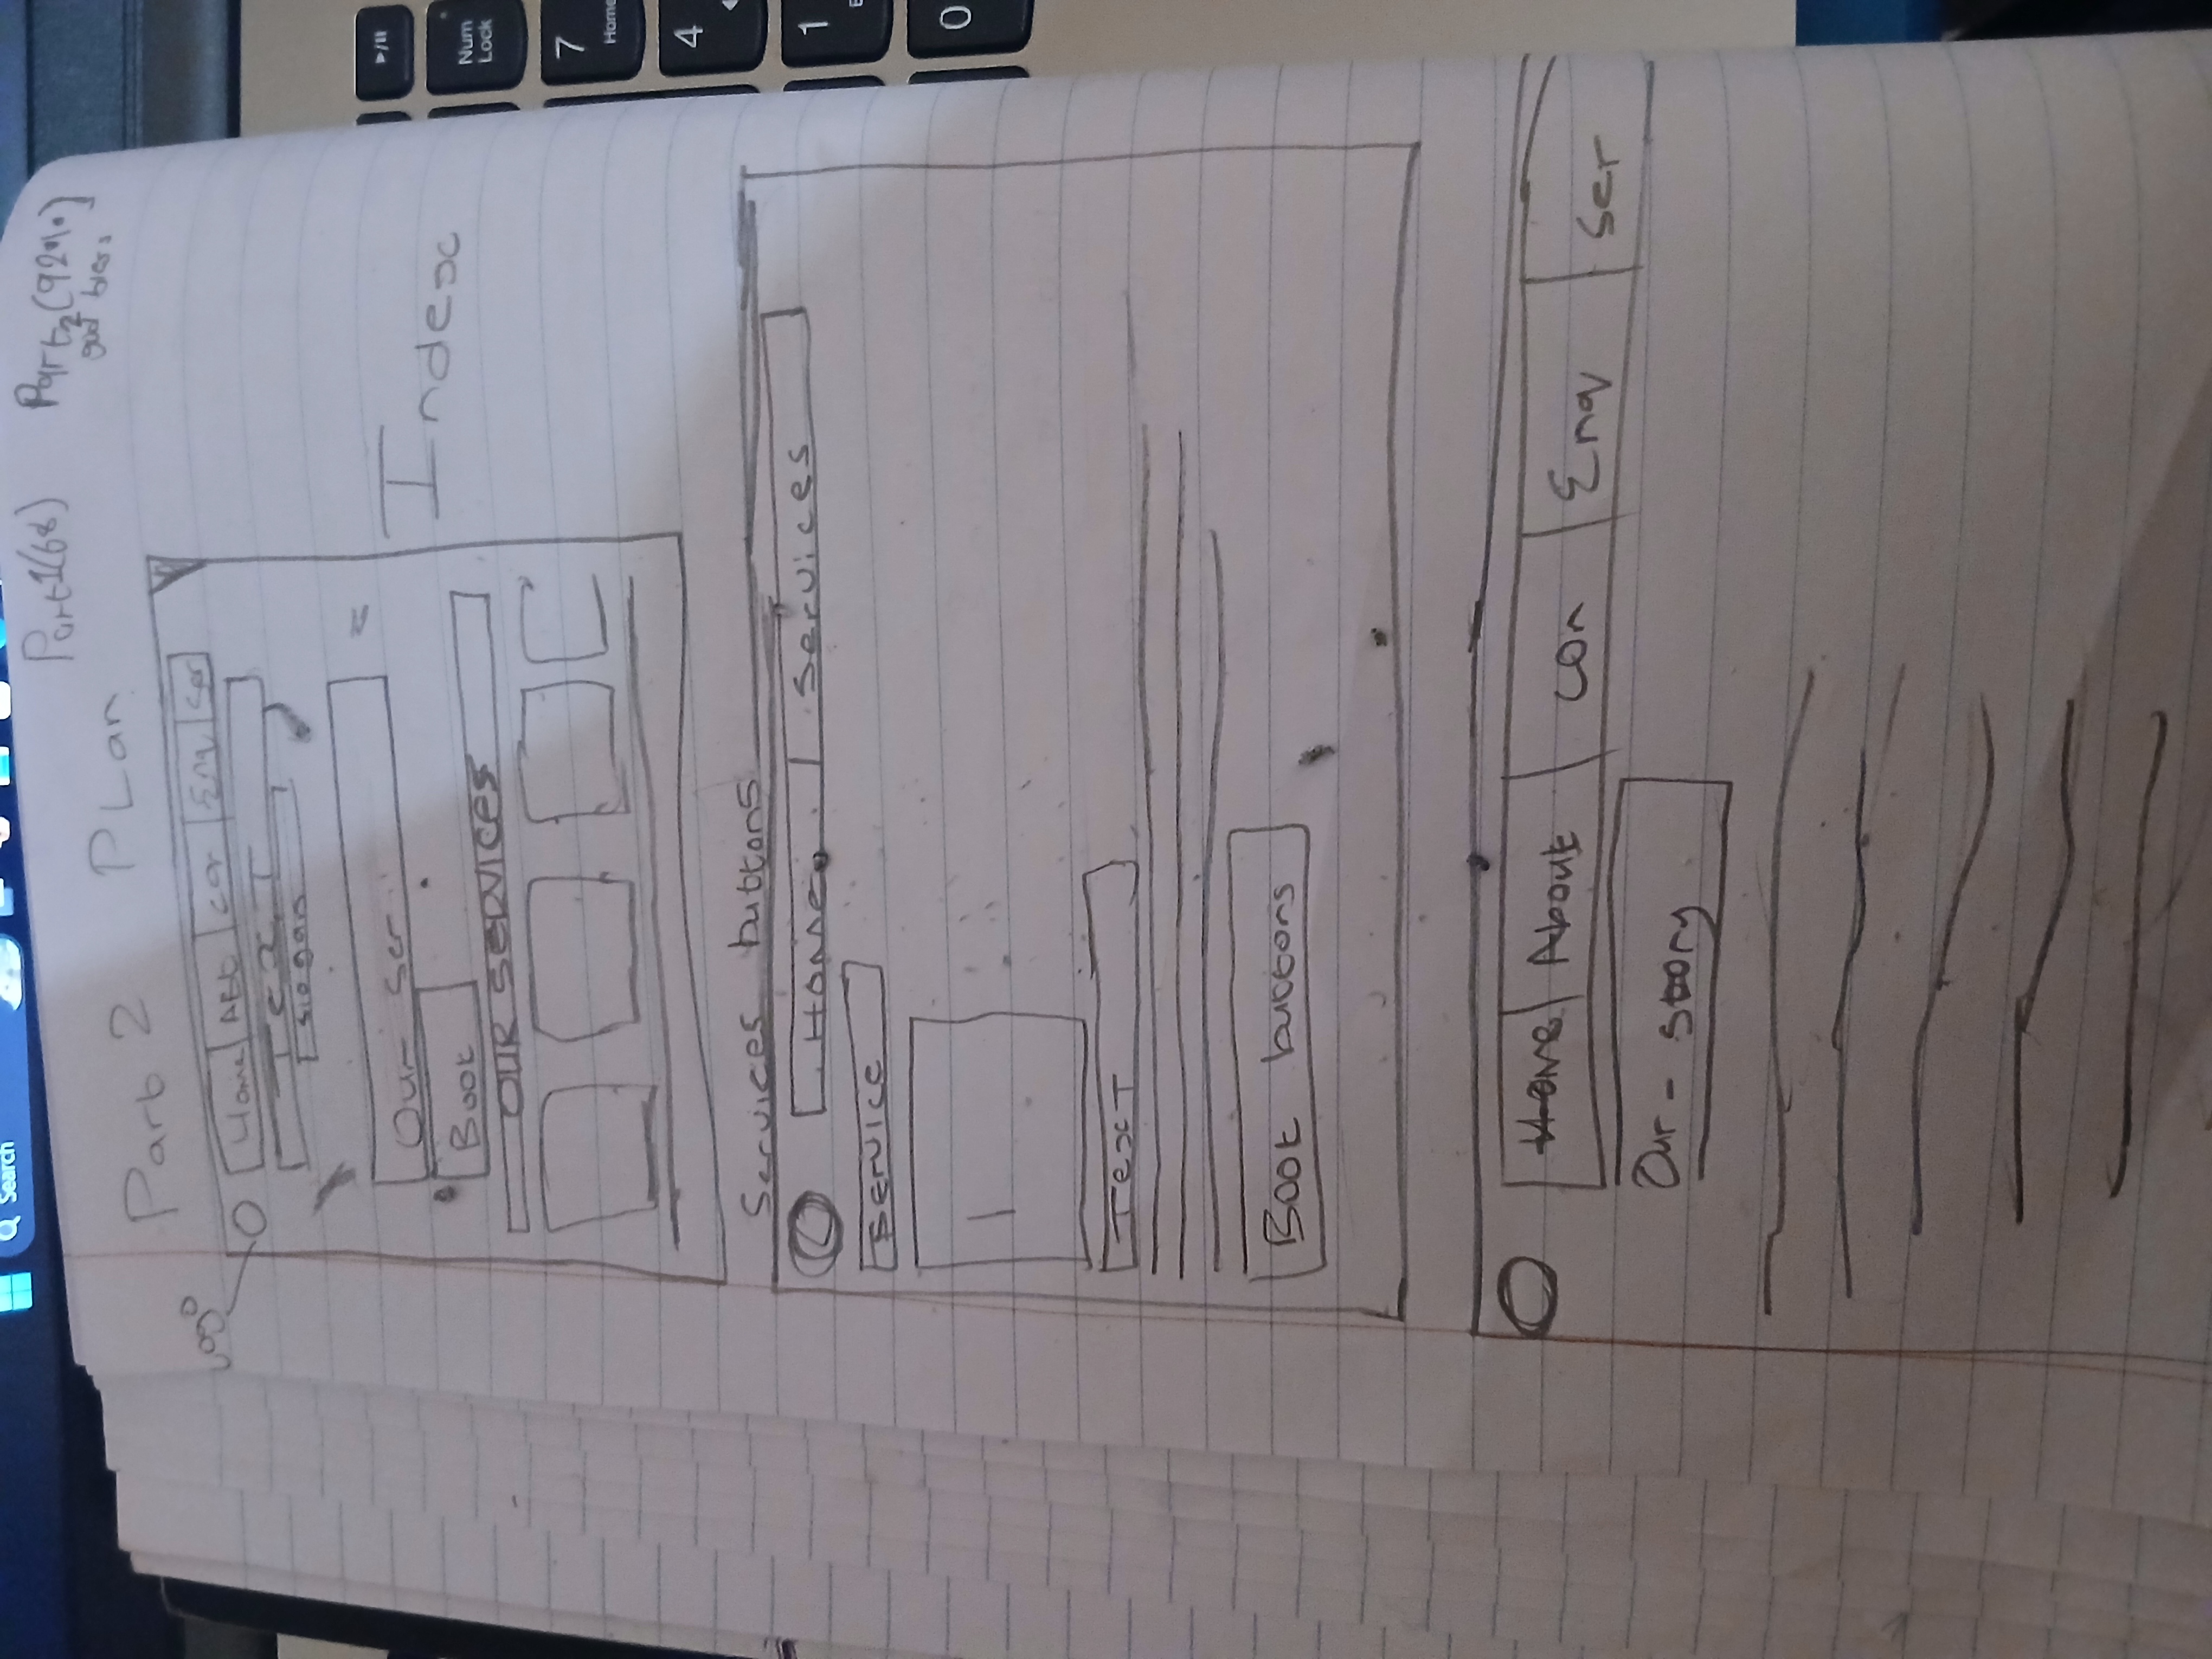 Search
Part1(68) Part2(92%)
god bless
Part 2 PLan
Logo
Home ABt con Enq Ser
Text
slogan
Our - Ser
Book
OUR SERVICES
Index
Services buttons
Home Services
SERVICE
Text
Book buttons
Home About con Enq Ser
Our - story
Num
Lock
7
Home
4
1
0